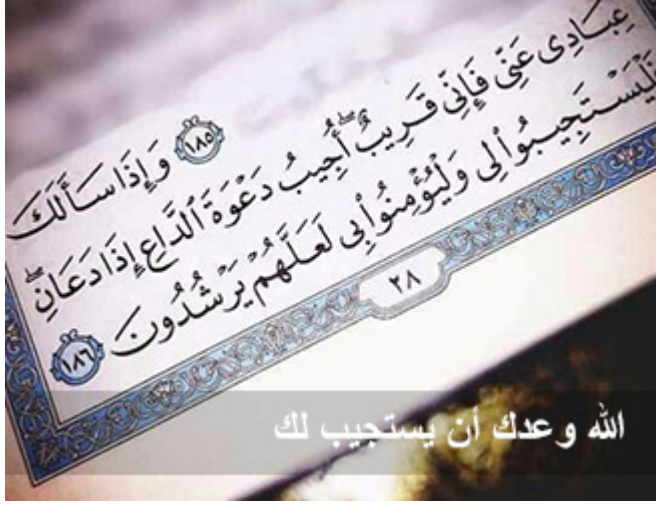 ١٨٥ وَإِذَا سَأَلَكَ
عِبَادِي عَنِّي فَإِنِّي قَرِيبٌ ۖ أُجِيبُ دَعْوَةَ ٱلدَّاعِ إِذَا دَعَانِ ۖ
فَلْيَسْتَجِيبُوا۟ لِي وَلْيُؤْمِنُوا۟ بِي لَعَلَّهُمْ يَرْشُدُونَ ١٨٦
٢٨
الله وعدك أن يستجيب لك